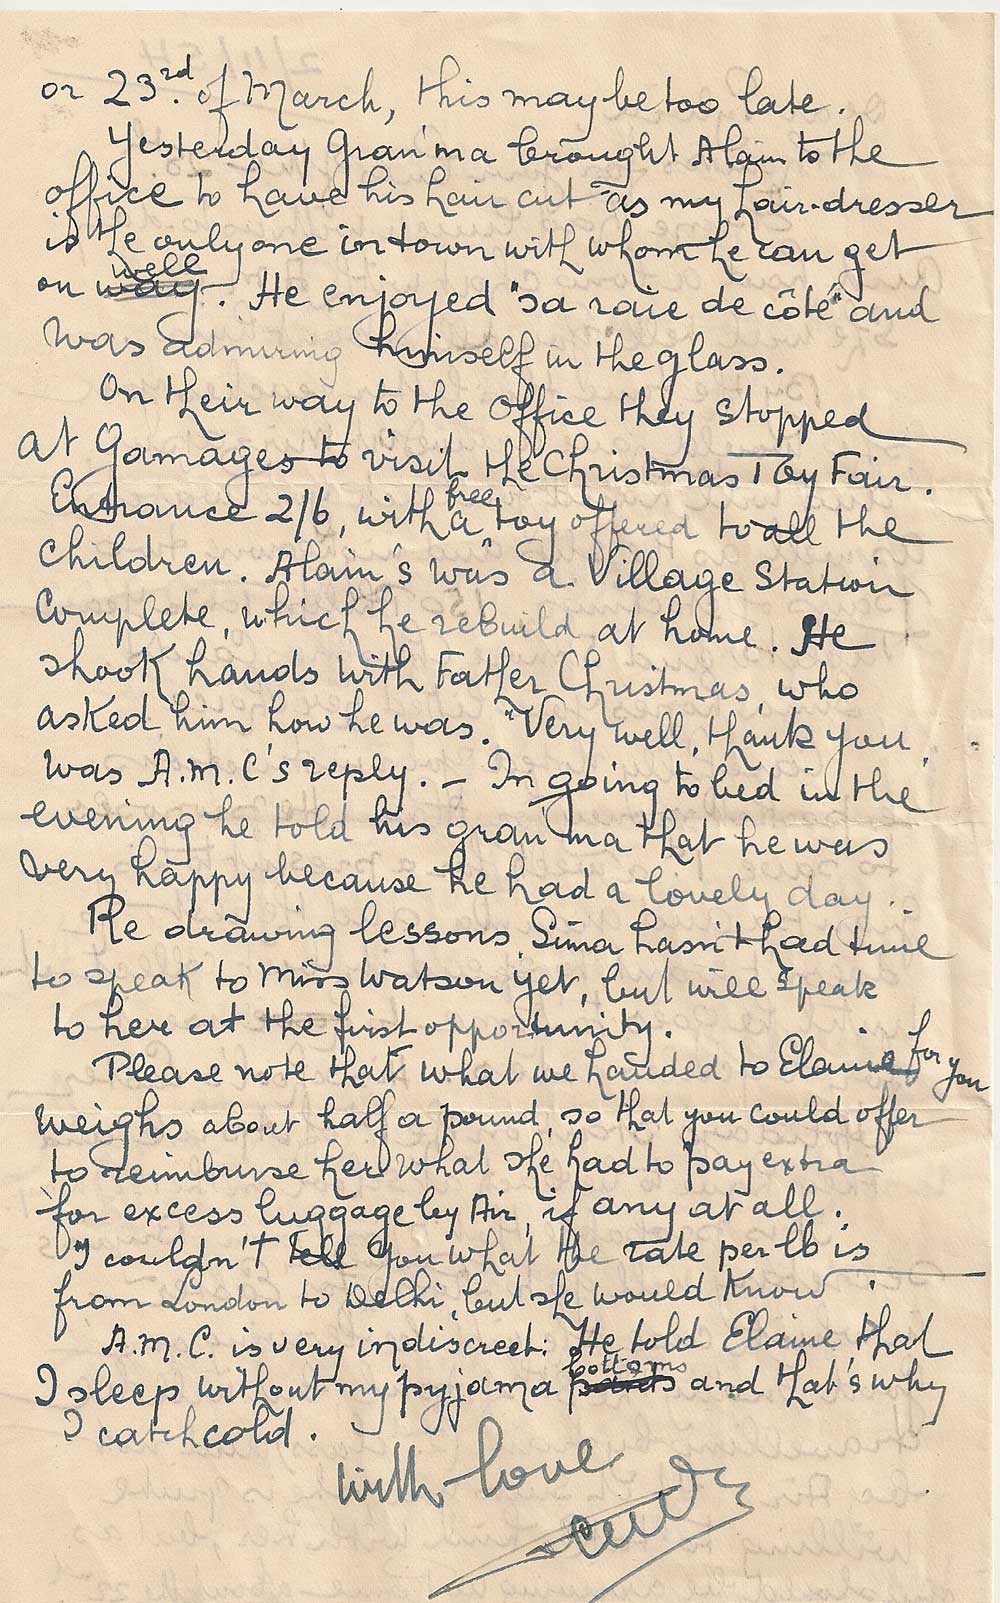 or 23rd. of March, this may be too late.
Yesterday Gran'ma brought Alain to the
office to have his hair cut as my hair-dresser
is the only one in town with whom he can get
on way well. He enjoyed "sa raie de côté" and
was admiring himself in the glass.
On their way to the office they stopped
at Gamages to visit the Christmas Toy Fair.
Entrance 2/6, with a free toy offered to all the
children. Alain's was a Village Station
complete, which he rebuild at home. He
shook hands with Father Christmas, who
asked him how he was. "Very well, thank you,
was A.M.C's reply. – In going to bed in the
evening he told his gran'ma that he was
very happy because he had a lovely day.
Re drawing lessons, Sima hasn't had time
to speak to Miss Watson yet, but will speak
to her at the first opportunity.
Please note that what we handed to Elaine for you
weighs about half a pound, so that you could offer
to reimburse her what she had to pay extra
for excess luggage by Air, if any at all.
I couldn't tell you what the rate per lb is
from London to Delhi, but she would know.
A.M.C. is very indiscreet: He told Elaine that
I sleep without my pyjama pants bottoms and that's why
I catch cold.
With love